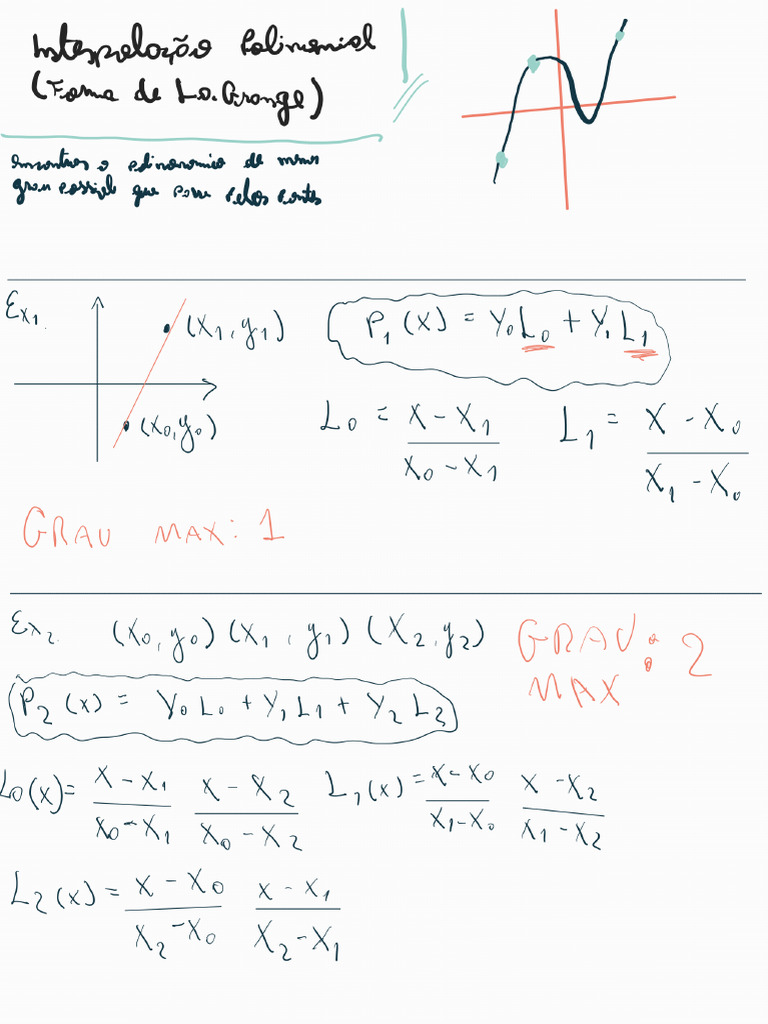 Interpolação Polinomial
(Forma de La Grange)
encontrar o polinomio de menor
grau possivel que passe pelos pontos
Ex1.
(x1, y1)
(x0, y0)
P1(x) = Y0L0 + Y1L1
L0 = (x - x1)/(x0 - x1)
L1 = (x - x0)/(x1 - x0)
GRAU MAX: 1
Ex2. (x0, y0) (x1, y1) (x2, y2)
GRAU MAX: 2
P2(x) = Y0L0 + Y1L1 + Y2L2
L0(x) = (x - x1)/(x0 - x1) (x - x2)/(x0 - x2)
L1(x) = (x - x0)/(x1 - x0) (x - x2)/(x1 - x2)
L2(x) = (x - x0)/(x2 - x0) (x - x1)/(x2 - x1)